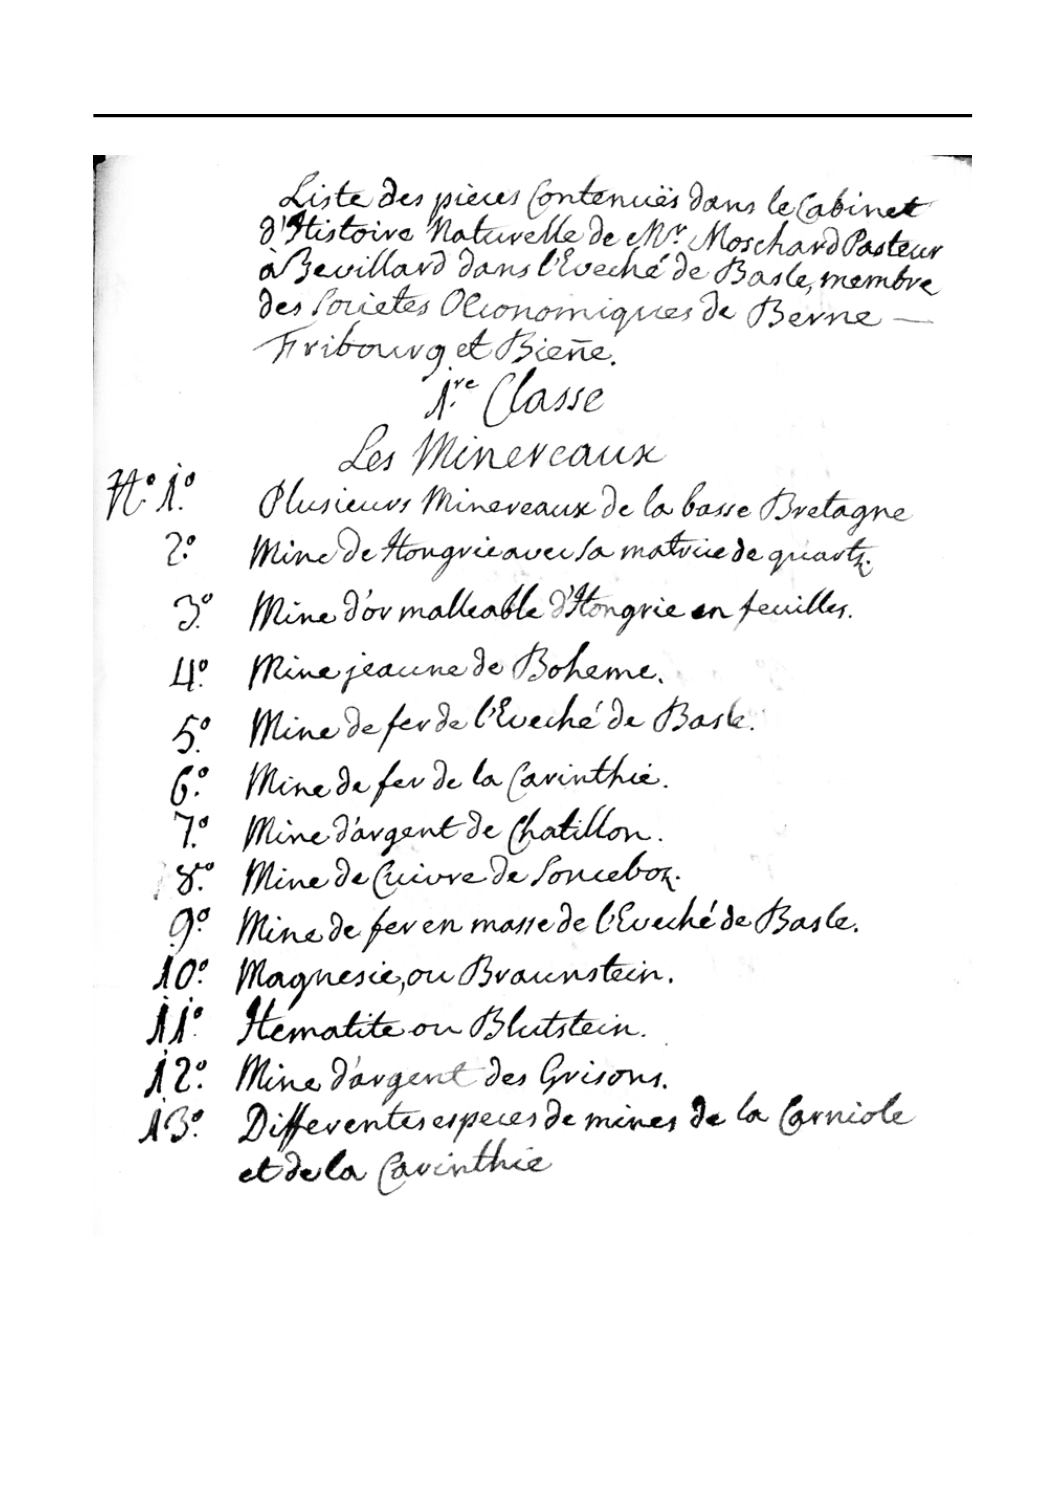 Liste des pièces Contenuës dans le Cabinet
d'Histoire Naturelle de Mr. Moschard Pasteur
à Bevillard dans l'Eveché de Basle, membre
des Societes Oeconomiques de Berne —
Fribourg et Bien̄e.
1.re Classe
Les Minereaux
N.o 1.o Plusieurs Minereaux de la basse Bretagne
2.o Mine de Hongrie avec sa matrice de quartz.
3.o Mine d'or malleable d'Hongrie en feuilles.
4.o Mine jeaune de Boheme.
5.o Mine de fer de l'Eveché de Basle.
6.o Mine de fer de la Carinthie.
7.o Mine d'argent de Chatillon.
8.o Mine de Cuivre de Sonceboz.
9.o Mine de fer en masse de l'Eveché de Basle.
10.o Magnesie, ou Braunstein.
11.o Hematite ou Blutstein.
12.o Mine d'argent des Grisons.
13.o Differentes especes de mines de la Carniole
et de la Carinthie